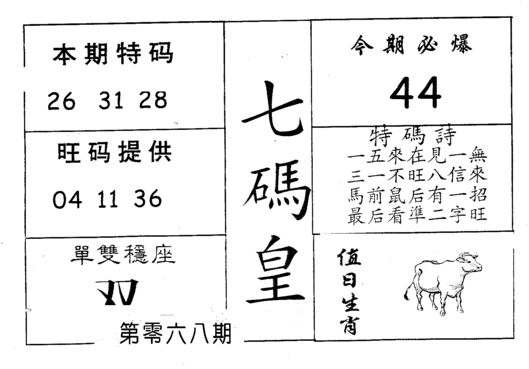 本期特码
26 31 28
旺码提供
04 11 36
單雙穩座
七碼皇
第零六八期
今期必爆
44
特碼詩
一五來在見一無
三一不旺八信來
馬前鼠后有一招
最后看準二字旺
值日生肖